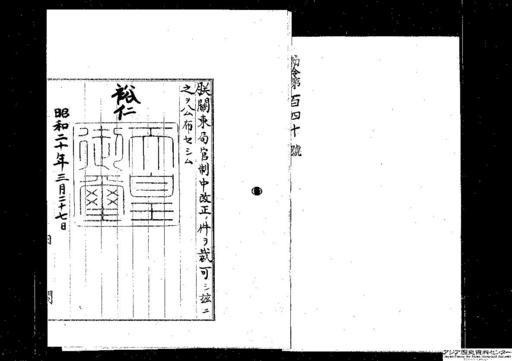 勅令第百四十號
朕關東局官制中改正ノ件ヲ裁可シ玆ニ
之ヲ公布セシム
裕仁
天皇
御璽
昭和二十年三月二十七日
内閣
アジア歴史資料センター